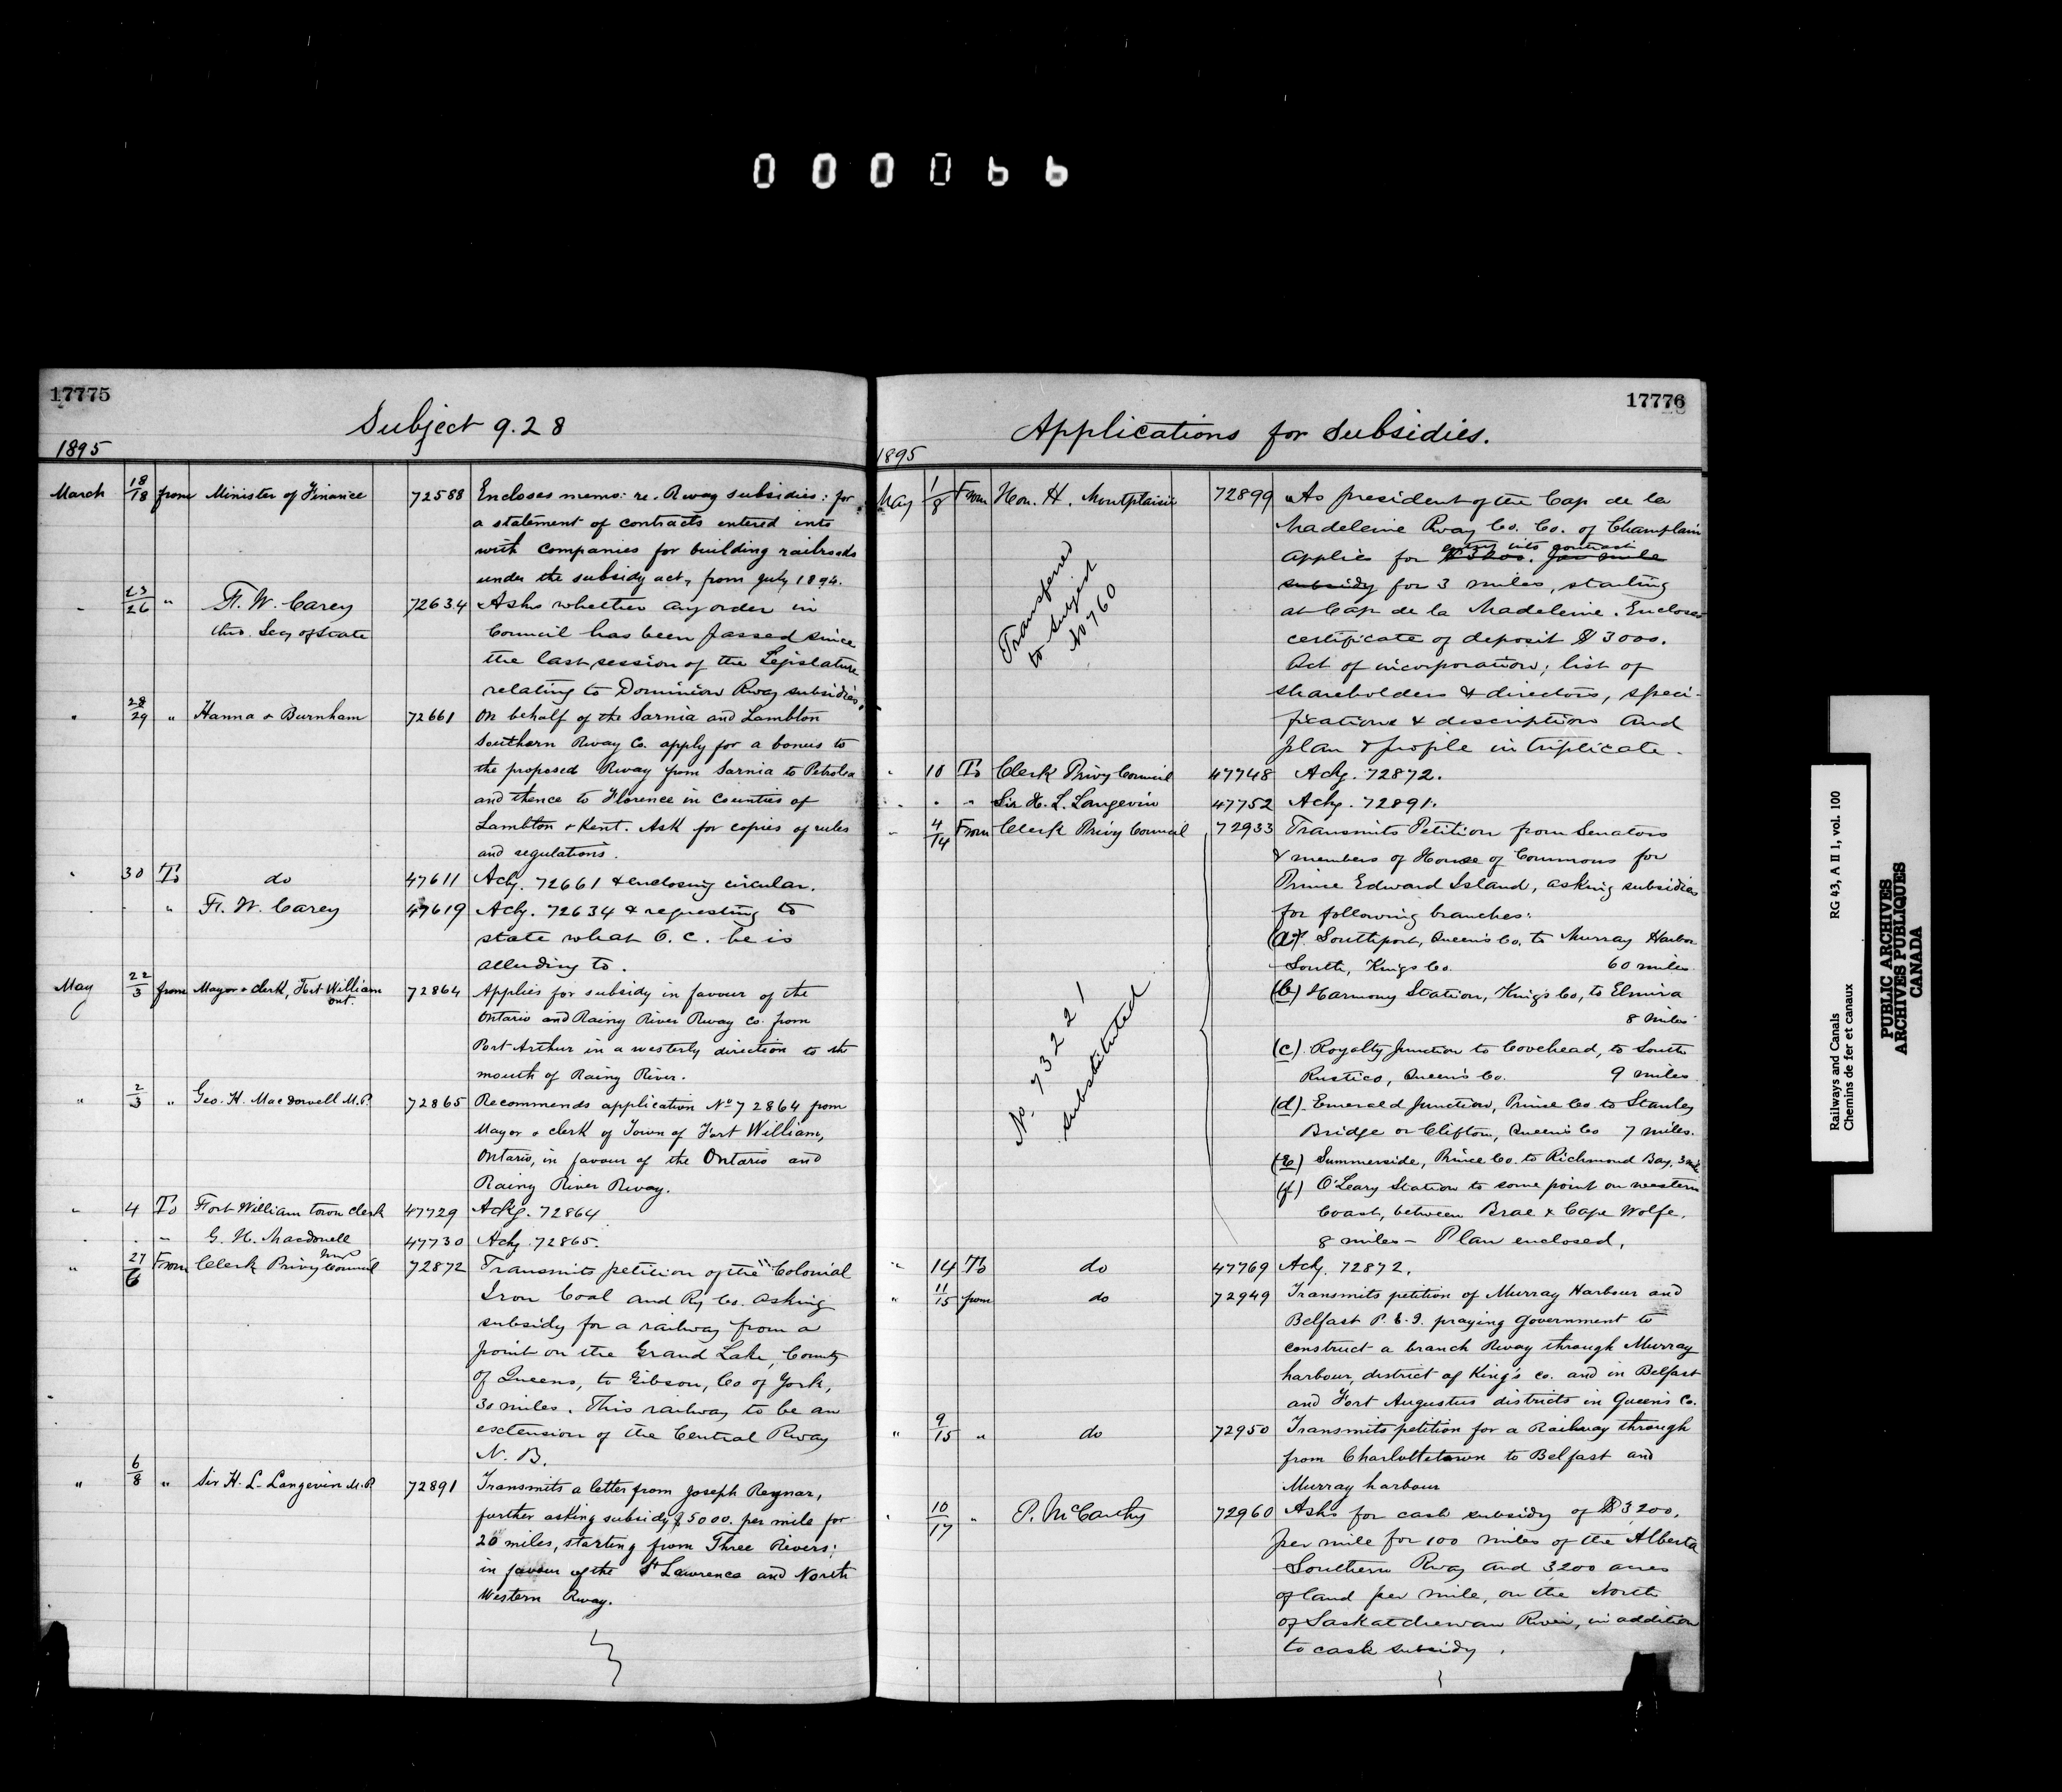 000066
17775
Subject 9.28
1895
March 18/18 from Minister of Finance 72588 Encloses memo: re. Rway subsidies: for
a statement of contracts entered into
with companies for building railroads
under the subsidy act, from July 1894.
" 23/26 " F. W. Carey 72634 Asks whether any order in
thro. Secy of State Council has been passed since
the last session of the Legislature
relating to Dominion Rway subsidies.
" 28/29 " Hanna & Burnham 72661 On behalf of the Sarnia and Lambton
Southern Rway Co. apply for a bonus to
the proposed Rway from Sarnia to Petrolea
and thence to Florence in Counties of
Lambton & Kent. Ask for copies of rules
and regulations.
" 30 To do 47611 Ackg. 72661 & enclosing circular.
" " " F. W. Carey 47619 Ackg. 72634 & requesting to
state what O. C. he is
alluding to.
May 22/3 from Mayor & Clerk, Fort William Ont. 72864 Applies for subsidy in favour of the
Ontario and Rainy River Rway Co. from
Port Arthur in a westerly direction to the
mouth of Rainy River.
" 2/3 " Geo. H. Macdowell M.P. 72865 Recommends application No 72864 from
Mayor & Clerk of Town of Fort William,
Ontario, in favour of the Ontario and
Rainy River Rway.
" 4 To Fort William town Clerk 47729 Ackg. 72864
" " " G. H. Macdowell 47730 Ackg. 72865.
" 27/6 From Clerk Privy Council 72872 Transmits petition of the "Colonial
Iron Coal and Ry Co. asking
subsidy for a railway from a
point on the Grand Lake, County
of Queens, to Gibson, Co of York,
30 miles. This railway to be an
extension of the Central Rway
N. B.
" 6/8 " Sir H. L. Langevin M.P. 72891 Transmits a letter from Joseph Reynar,
further asking subsidy $5000. per mile for
20 miles, starting from Three Rivers;
in favour of the St Lawrence and North
Western Rway.
17776
Applications for Subsidies.
1895
May 1/8 From Hon. H. Montplaisir 72899 As president of the Cap de la
Madeleine Rway Co. Co. of Champlain
entry into contract
applies for $3200. per mile
subsidy for 3 miles, starting
at Cap de la Madeleine. Encloses
certificate of deposit $3000.
Act of incorporation; list of
shareholders & directors, speci-
fications & description and
plan & profile in triplicate.
Transferred
to subject
No 760
" 10 To Clerk Privy Council 47748 Ackg. 72872.
" " " Sir H. L. Langevin 47752 Ackg. 72891.
" 4/14 From Clerk Privy Council 72933 Transmits Petition from Senators
& members of House of Commons for
Prince Edward Island, asking subsidies
for following branches:
(a) Southport, Queen's Co. to Murray Harbor
South, Kings Co. 60 miles
(b) Harmony Station, King's Co, to Elmira
8 miles
(c) Royalty Junction to Covehead, to South
Rustico, Queen's Co. 9 miles.
(d) Emerald Junction, Prince Co. to Stanley
Bridge or Clifton, Queen's Co 7 miles.
(e) Summerside, Prince Co. to Richmond Bay, 3 mile
(f) O'Leary Station to some point on western
Coast, between Brae & Cape Wolfe.
8 miles - Plan enclosed,
No. 73221
substituted
" 14 To do 47769 Ackg. 72872.
" 11/15 from do 72949 Transmits petition of Murray Harbour and
Belfast P. E. I. praying Government to
construct a branch Rway through Murray
harbour, district of King's Co. and in Belfast
and Fort Augustus districts in Queen's Co.
" 9/15 " do 72950 Transmits petition for a Railway through
from Charlottetown to Belfast and
Murray harbour
" 10/17 " P. McCarthy 72960 Asks for cash subsidy of $3200.
per mile for 100 miles of the Alberta
Southern Rway and 3200 acres
of land per mile, on the North
of Saskatchewan River, in addition
to cash subsidy.
Railways and Canals RG 43, A II 1, vol. 100
Chemins de fer et canaux
PUBLIC ARCHIVES
ARCHIVES PUBLIQUES
CANADA